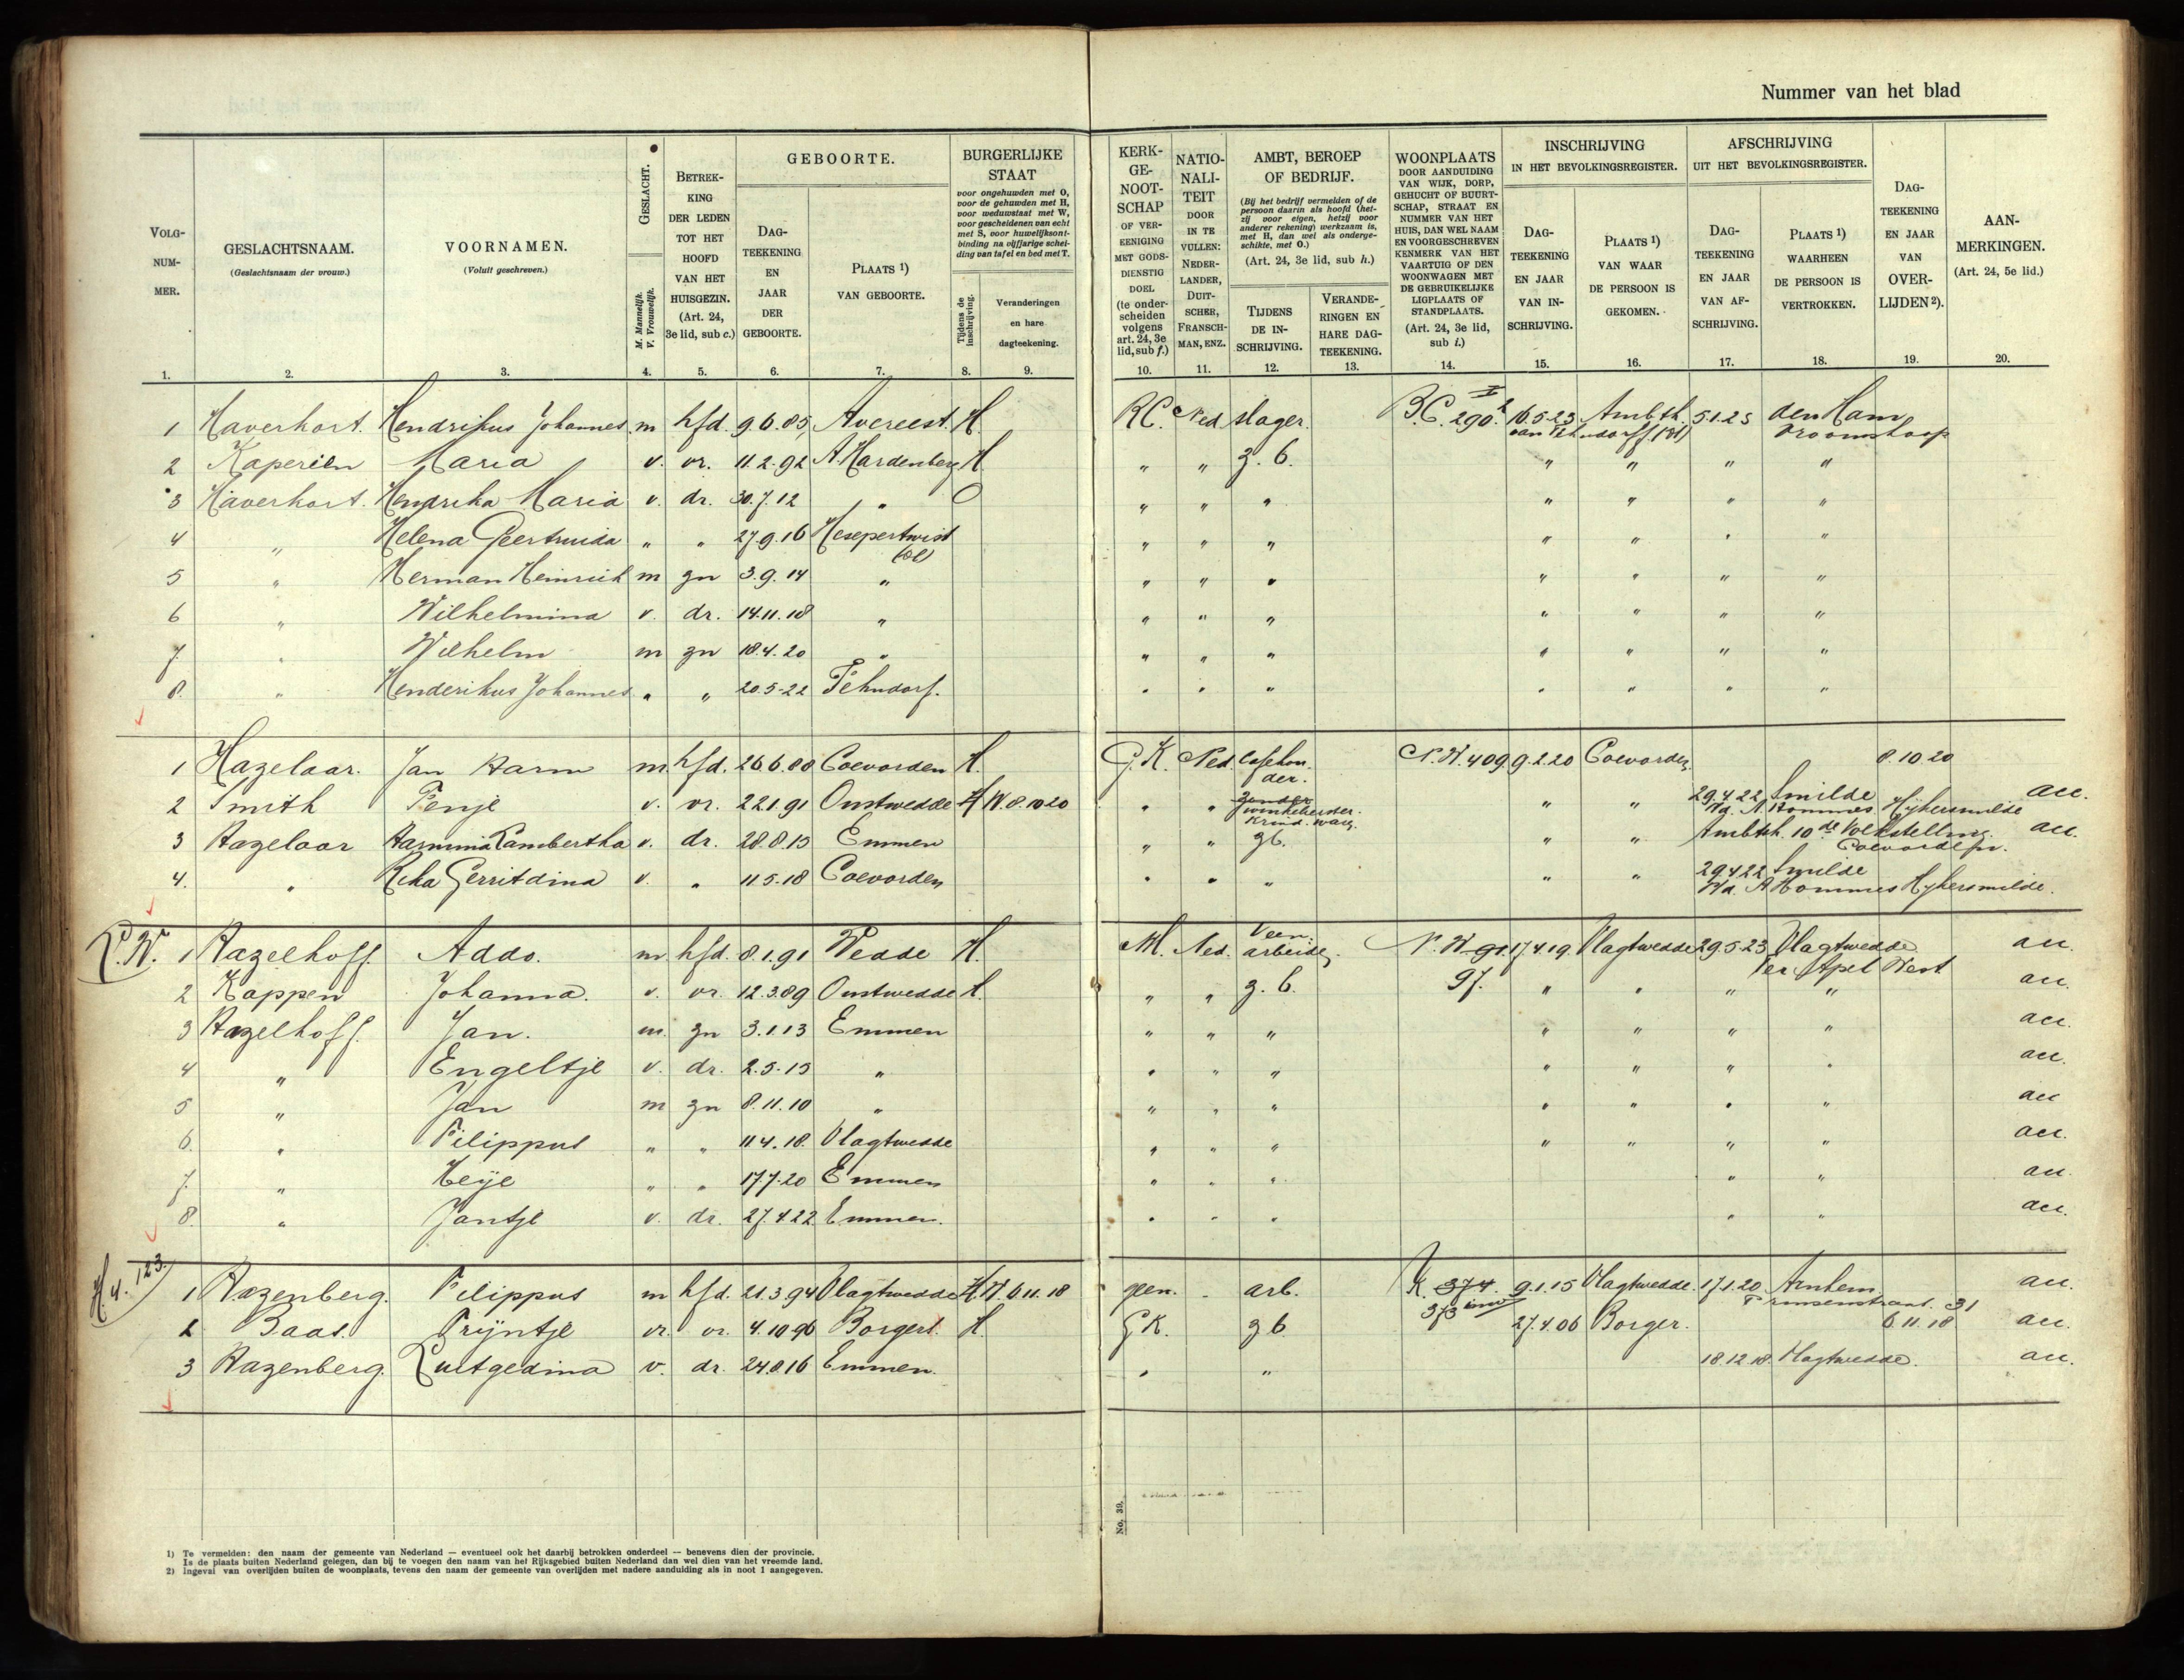 Nummer van het blad
VOLG-NUM-MER.
GESLACHTSNAAM.
(Geslachtsnaam der vrouw.)
VOORNAMEN.
(Voluit geschreven.)
GESLACHT.
M. Mannelijk.
V. Vrouwelijk.
BETREK-KING DER LEDEN TOT HET HOOFD VAN HET HUISGEZIN.
(Art. 24, 3e lid, sub c.)
GEBOORTE.
DAG-TEEKENING EN JAAR DER GEBOORTE.
PLAATS 1) VAN GEBOORTE.
BURGERLIJKE STAAT
voor ongehuwden met O,
voor de gehuwden met H,
voor weduwstaat met W,
voor gescheidenen van echt
met S, voor huwelijksont-
binding na vijfjarige schei-
ding van tafel en bed met T.
Tijdens de inschrijving.
Veranderingen en hare dagteekening.
KERK-GE-NOOT-SCHAP
OF VER-EENIGING MET GODS-DIENSTIG DOEL
(te onder-scheiden volgens art. 24, 3e lid, sub f.)
NATIO-NALI-TEIT
DOOR IN TE VULLEN: NEDER-LANDER, DUIT-SCHER, FRANSCH-MAN, ENZ.
AMBT, BEROEP OF BEDRIJF.
(Bij het bedrijf vermelden of de
persoon daarin als hoofd (het-
zij voor eigen, hetzij voor
anderer rekening) werkzaam is,
met H, dan wel als onderge-
schikte, met O.)
(Art. 24, 3e lid, sub h.)
TIJDENS DE IN-SCHRIJVING.
VERANDE-RINGEN EN HARE DAG-TEEKENING.
WOONPLAATS
DOOR AANDUIDING
VAN WIJK, DORP,
GEHUCHT OF BUURT-
SCHAP, STRAAT EN
NUMMER VAN HET
HUIS, DAN WEL NAAM
EN VOORGESCHREVEN
KENMERK VAN HET
VAARTUIG OF DEN
WOONWAGEN MET
DE GEBRUIKELIJKE
LIGPLAATS OF
STANDPLAATS.
(Art. 24, 3e lid, sub i.)
INSCHRIJVING
IN HET BEVOLKINGSREGISTER.
DAG-TEEKENING EN JAAR VAN IN-SCHRIJVING.
PLAATS 1) VAN WAAR DE PERSOON IS GEKOMEN.
AFSCHRIJVING
UIT HET BEVOLKINGSREGISTER.
DAG-TEEKENING EN JAAR VAN AF-SCHRIJVING.
PLAATS 1) WAARHEEN DE PERSOON IS VERTROKKEN.
DAG-TEEKENING EN JAAR VAN OVER-LIJDEN 2).
AAN-MERKINGEN.
(Art. 24, 5e lid.)
1. 2. 3. 4. 5. 6. 7. 8. 9. 10. 11. 12. 13. 14. 15. 16. 17. 18. 19. 20.
1 Haverkort. Hendrikus Johannes m hfd. 9.6.85 Avereest. H. R.C. Ned. slager. B.C. 290 16.5.23 Ambtsh. 5.1.25 den Ham
Vroomshoop
2 Maria v. vr. 11.2.92 A. Hardenberg H. " " z.b. " " " "
3 Haverkort. Hendrika Maria v. dr. 30.7.12 " O " " " " " " "
4 " Helena Geertruida " " 27.9.16 Hesepertwist " " " " " " "
5 " Herman Heinrich m zn 3.9.14 " " " " " " " "
6 " Wilhelmina v. dr. 14.11.18 " " " " " " " "
7 " Wilhelm m zn 18.4.20 " " " " " " " "
8. " Henderikus Johannes " " 20.5.22 Fehndorf. " " " " " " "
1 Hazelaar. Jan Harm m. hfd. 26.6.88 Coevorden H. G.K. Ned. N.W. 409 9.2.20 Coevorden 8.10.20
2 Smith Fenje v. vr. 22.1.91 Onstwedde H W. 8.10.20 " " " " 29.4.22 Smilde
Hijkersmilde
3 Hazelaar Harmina Lambertha v. dr. 28.8.15 Emmen " " zb. " " Ambtsh. 10de Volkstelling.
Coevorden.
4. " Rika Gerritdina v. " 11.5.18 Coevorden " " " " " 29.4.22 Smilde
Hijkersmilde.
P.W. 1 Hazelhoff. Addo. m hfd. 8.1.91 Wedde H. Ned. Veen arbeider. N.W. 91. 17.4.19. Vlagtwedde 29.5.23 Vlagtwedde
Ter Apel West
2 Kappen Johanna. v. vr. 12.3.89 Onstwedde H. " " z.b. 97. " " " "
3 Hazelhoff. Jan. m. zn 3.1.13 Emmen " " " " " " "
4 " Engeltje v. dr. 2.5.15 " " " " " " " "
5 " Jan m zn 8.11.10 " " " " " " " "
6. " Filippus " " 11.4.18. Vlagtwedde " " " " " " "
7. " " " 17.7.20 Emmen " " " " "
8. " Jantje v. dr. 27.4.22 Emmen. " " " " "
H.4. 123. 1 Hazenberg. Filippus m hfd. 21.3.94 Vlagtwedde H W. 6.11.18 geen. " arb. K. 374 9.1.15 Vlagtwedde. 17.1.20 Arnhem
373 Prinsenstraat 31
2 Baas. Trijntje vr. vr. 4.10.96 Borger. H. G.K. z.b 27.4.06 Borger. 6.11.18
3 Hazenberg. Luitgedina v. dr. 24.8.16 Emmen. " " 18.12.18. Vlagtwedde.
No. 39.
1) Te vermelden: den naam der gemeente van Nederland — eventueel ook het daarbij betrokken onderdeel — benevens dien der provincie.
Is de plaats buiten Nederland gelegen, dan bij te voegen den naam van het Rijksgebied buiten Nederland dan wel dien van het vreemde land.
2) Ingeval van overlijden buiten de woonplaats, tevens den naam der gemeente van overlijden met nadere aanduiding als in noot 1 aangegeven.